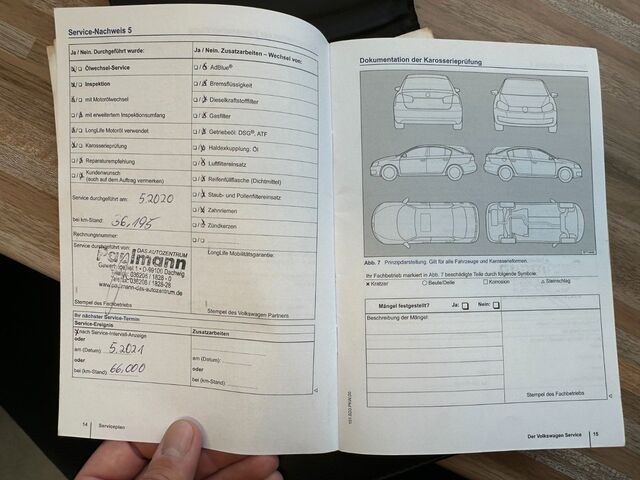 Service-Nachweis 5
Ja / Nein. Durchgeführt wurde:
Ölwechsel-Service
Inspektion
mit Motorölwechsel
mit erweitertem Inspektionsumfang
LongLife Motoröl verwendet
Karosserieprüfung
Reparaturempfehlung
Kundenwunsch
(auch auf dem Auftrag vermerken)
Service durchgeführt am: 5.2020
bei km-Stand: 36,195
Rechnungsnummer:
Service durchgeführt von:
DAS AUTOZENTRUM
D-99100 Dachwig
Telefon: 036206 / 1828 - 0
036206 / 1828-28
Stempel des Fachbetriebs
Ja / Nein. Zusatzarbeiten – Wechsel von:
AdBlue®
Bremsflüssigkeit
Dieselkraftstofffilter
Gasfilter
Getriebeöl: DSG®, ATF
Haldexkupplung: Öl
Luftfiltereinsatz
Reifenfüllflasche (Dichtmittel)
Staub- und Pollenfiltereinsatz
Zahnriemen
Zündkerzen
LongLife Mobilitätsgarantie:
Stempel des Volkswagen Partners
Ihr nächster Service-Termin
Service-Ereignis
nach Service-Intervall-Anzeige
oder
am (Datum) 5.2021
oder
bei (km-Stand) 66,000
Zusatzarbeiten
am (Datum):
oder
bei (km-Stand):
14 Serviceplan
Dokumentation der Karosserieprüfung
Abb. 7 Prinzipdarstellung. Gilt für alle Fahrzeuge und Karosserieformen.
Ihr Fachbetrieb markiert in Abb. 7 beschädigte Teile durch folgende Symbole:
× Kratzer ○ Beule/Delle □ Korrosion △ Steinschlag
Mängel festgestellt? Ja: Nein:
Beschreibung der Mängel:
Stempel des Fachbetriebs
Der Volkswagen Service 15